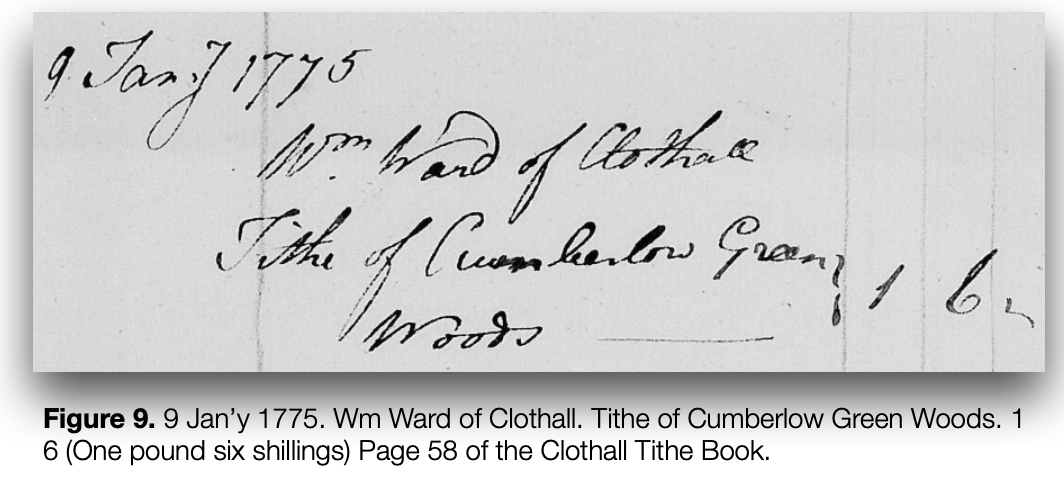 9 Jan:y 1775
Wm. Ward of Clothall
Tithe of Cumberlow Green } 1 6 "
Woods
Figure 9. 9 Jan’y 1775. Wm Ward of Clothall. Tithe of Cumberlow Green Woods. 1
6 (One pound six shillings) Page 58 of the Clothall Tithe Book.